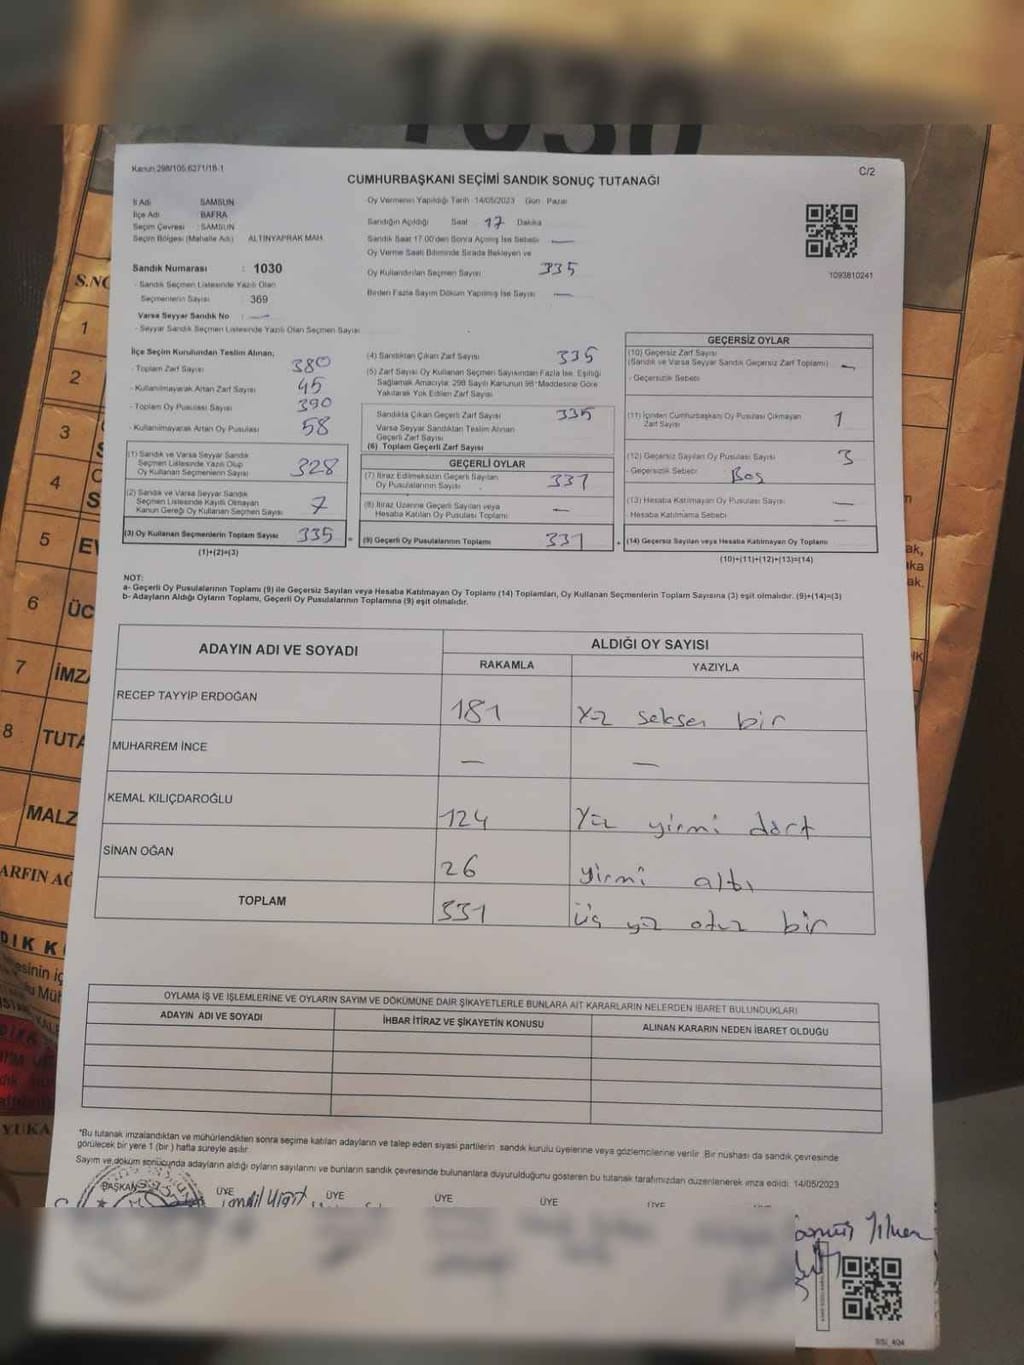 1030
Kanun 298/105.6271/18-1
C/2
CUMHURBAŞKANI SEÇİMİ SANDIK SONUÇ TUTANAĞI
İl Adı SAMSUN
İlçe Adı BAFRA
Seçim Çevresi : SAMSUN
Seçim Bölgesi (Mahalle Adı) ALTINYAPRAK MAH.
Sandık Numarası : 1030
- Sandık Seçmen Listesinde Yazılı Olan
Seçmenlerin Sayısı 369
Varsa Seyyar Sandık No : —
- Seyyar Sandık Seçmen Listesinde Yazılı Olan Seçmen Sayısı
Oy Vermenin Yapıldığı Tarih 14/05/2023 Gün Pazar
Sandığın Açıldığı Saat 17 Dakika
Sandık Saat 17.00'den Sonra Açılmış İse Sebebi —
Oy Verme Saati Bitiminde Sırada Bekleyen ve
Oy Kullandırılan Seçmen Sayısı 335
Birden Fazla Sayım Döküm Yapılmış İse Sayısı —
1093810241
İlçe Seçim Kurulundan Teslim Alınan,
- Toplam Zarf Sayısı 380
- Kullanılmayarak Artan Zarf Sayısı 45
- Toplam Oy Pusulası Sayısı 390
- Kullanılmayarak Artan Oy Pusulası 58
(1) Sandık ve Varsa Seyyar Sandık
Seçmen Listesinde Yazılı Olup
Oy Kullanan Seçmenlerin Sayısı 328
(2) Sandık ve Varsa Seyyar Sandık
Seçmen Listesinde Kayıtlı Olmayan
Kanun Gereği Oy Kullanan Seçmen Sayısı 7
(3) Oy Kullanan Seçmenlerin Toplam Sayısı 335
(1)+(2)=(3)
(4) Sandıktan Çıkan Zarf Sayısı 335
(5) Zarf Sayısı Oy Kullanan Seçmen Sayısından Fazla İse, Eşitliği
Sağlamak Amacıyla; 298 Sayılı Kanunun 98'Maddesine Göre
Yakılarak Yok Edilen Zarf Sayısı
Sandıkta Çıkan Geçerli Zarf Sayısı 335
Varsa Seyyar Sandıktan Teslim Alınan
Geçerli Zarf Sayısı
(6) Toplam Geçerli Zarf Sayısı
GEÇERLİ OYLAR
(7) İtiraz Edilmeksizin Geçerli Sayılan
Oy Pusulalarının Sayısı 331
(8) İtiraz Üzerine Geçerli Sayılan veya
Hesaba Katılan Oy Pusulası Toplamı —
(9) Geçerli Oy Pusulalarının Toplamı 331
GEÇERSİZ OYLAR
(10) Geçersiz Zarf Sayısı
(Sandık ve Varsa Seyyar Sandık Geçersiz Zarf Toplamı) —
- Geçersizlik Sebebi
(11) İçinden Cumhurbaşkanı Oy Pusulası Çıkmayan
Zarf Sayısı 1
(12) Geçersiz Sayılan Oy Pusulası Sayısı 3
- Geçersizlik Sebebi Boş
(13) Hesaba Katılmayan Oy Pusulası Sayısı —
Hesaba Katılmama Sebebi —
(14) Geçersiz Sayılan veya Hesaba Katılmayan Oy Toplamı
(10)+(11)+(12)+(13)=(14)
NOT:
a- Geçerli Oy Pusulalarının Toplamı (9) ile Geçersiz Sayılan veya Hesaba Katılmayan Oy Toplamı (14) Toplamları, Oy Kullanan Seçmenlerin Toplam Sayısına (3) eşit olmalıdır. (9)+(14)=(3)
b- Adayların Aldığı Oyların Toplamı, Geçerli Oy Pusulalarının Toplamına (9) eşit olmalıdır.
ADAYIN ADI VE SOYADI ALDIĞI OY SAYISI
RAKAMLA YAZIYLA
RECEP TAYYİP ERDOĞAN 181 Yüz seksen bir
MUHARREM İNCE — —
KEMAL KILIÇDAROĞLU 124 Yüz yirmi dört
SİNAN OĞAN 26 yirmi altı
TOPLAM 331 üç yüz otuz bir
OYLAMA İŞ VE İŞLEMLERİNE VE OYLARIN SAYIM VE DÖKÜMÜNE DAİR ŞİKAYETLERLE BUNLARA AİT KARARLARIN NELERDEN İBARET BULUNDUKLARI
ADAYIN ADI VE SOYADI İHBAR İTİRAZ VE ŞİKAYETİN KONUSU ALINAN KARARIN NEDEN İBARET OLDUĞU
*Bu tutanak imzalandıktan ve mühürlendikten sonra seçime katılan adayların ve talep eden siyasi partilerin sandık kurulu üyelerine veya gözlemcilerine verilir. Bir nüshası da sandık çevresinde
görülecek bir yere 1 (bir) hafta süreyle asılır.
Sayım ve döküm sonucunda adayların aldığı oyların sayılarını ve bunların sandık çevresinde bulunanlara duyurulduğunu gösteren bu tutanak tarafımızdan düzenlenerek imza edildi. 14/05/2023
BAŞKAN ÜYE ÜYE ÜYE ÜYE ÜYE
S.NO
1
2
3
4
5
6 ÜÇ
7 İMZA
8 TUTA
MALZ
ARFIN AĞ